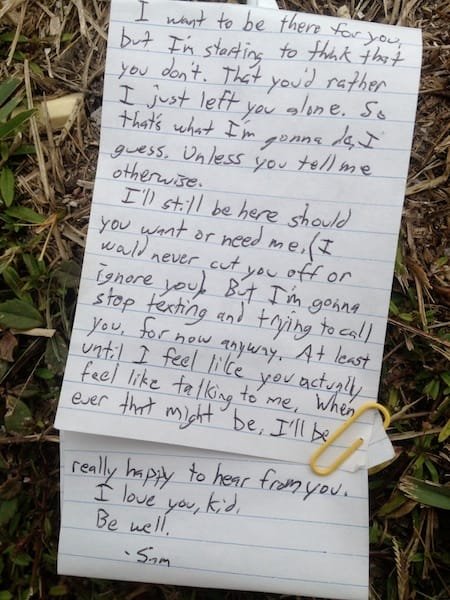 I want to be there for you,
but I'm starting to think that
you don't. That you'd rather
I just left you alone. So
that's what I'm gonna do, I
guess. Unless you tell me
otherwise.
I'll still be here should
you want or need me. (I
would never cut you off or
ignore you). But I'm gonna
stop texting and trying to call
you. for now anyway. At least
until I feel like you actually
feel like talking to me. When
ever that might be, I'll be
really happy to hear from you.
I love you, kid.
Be well.
- Sam